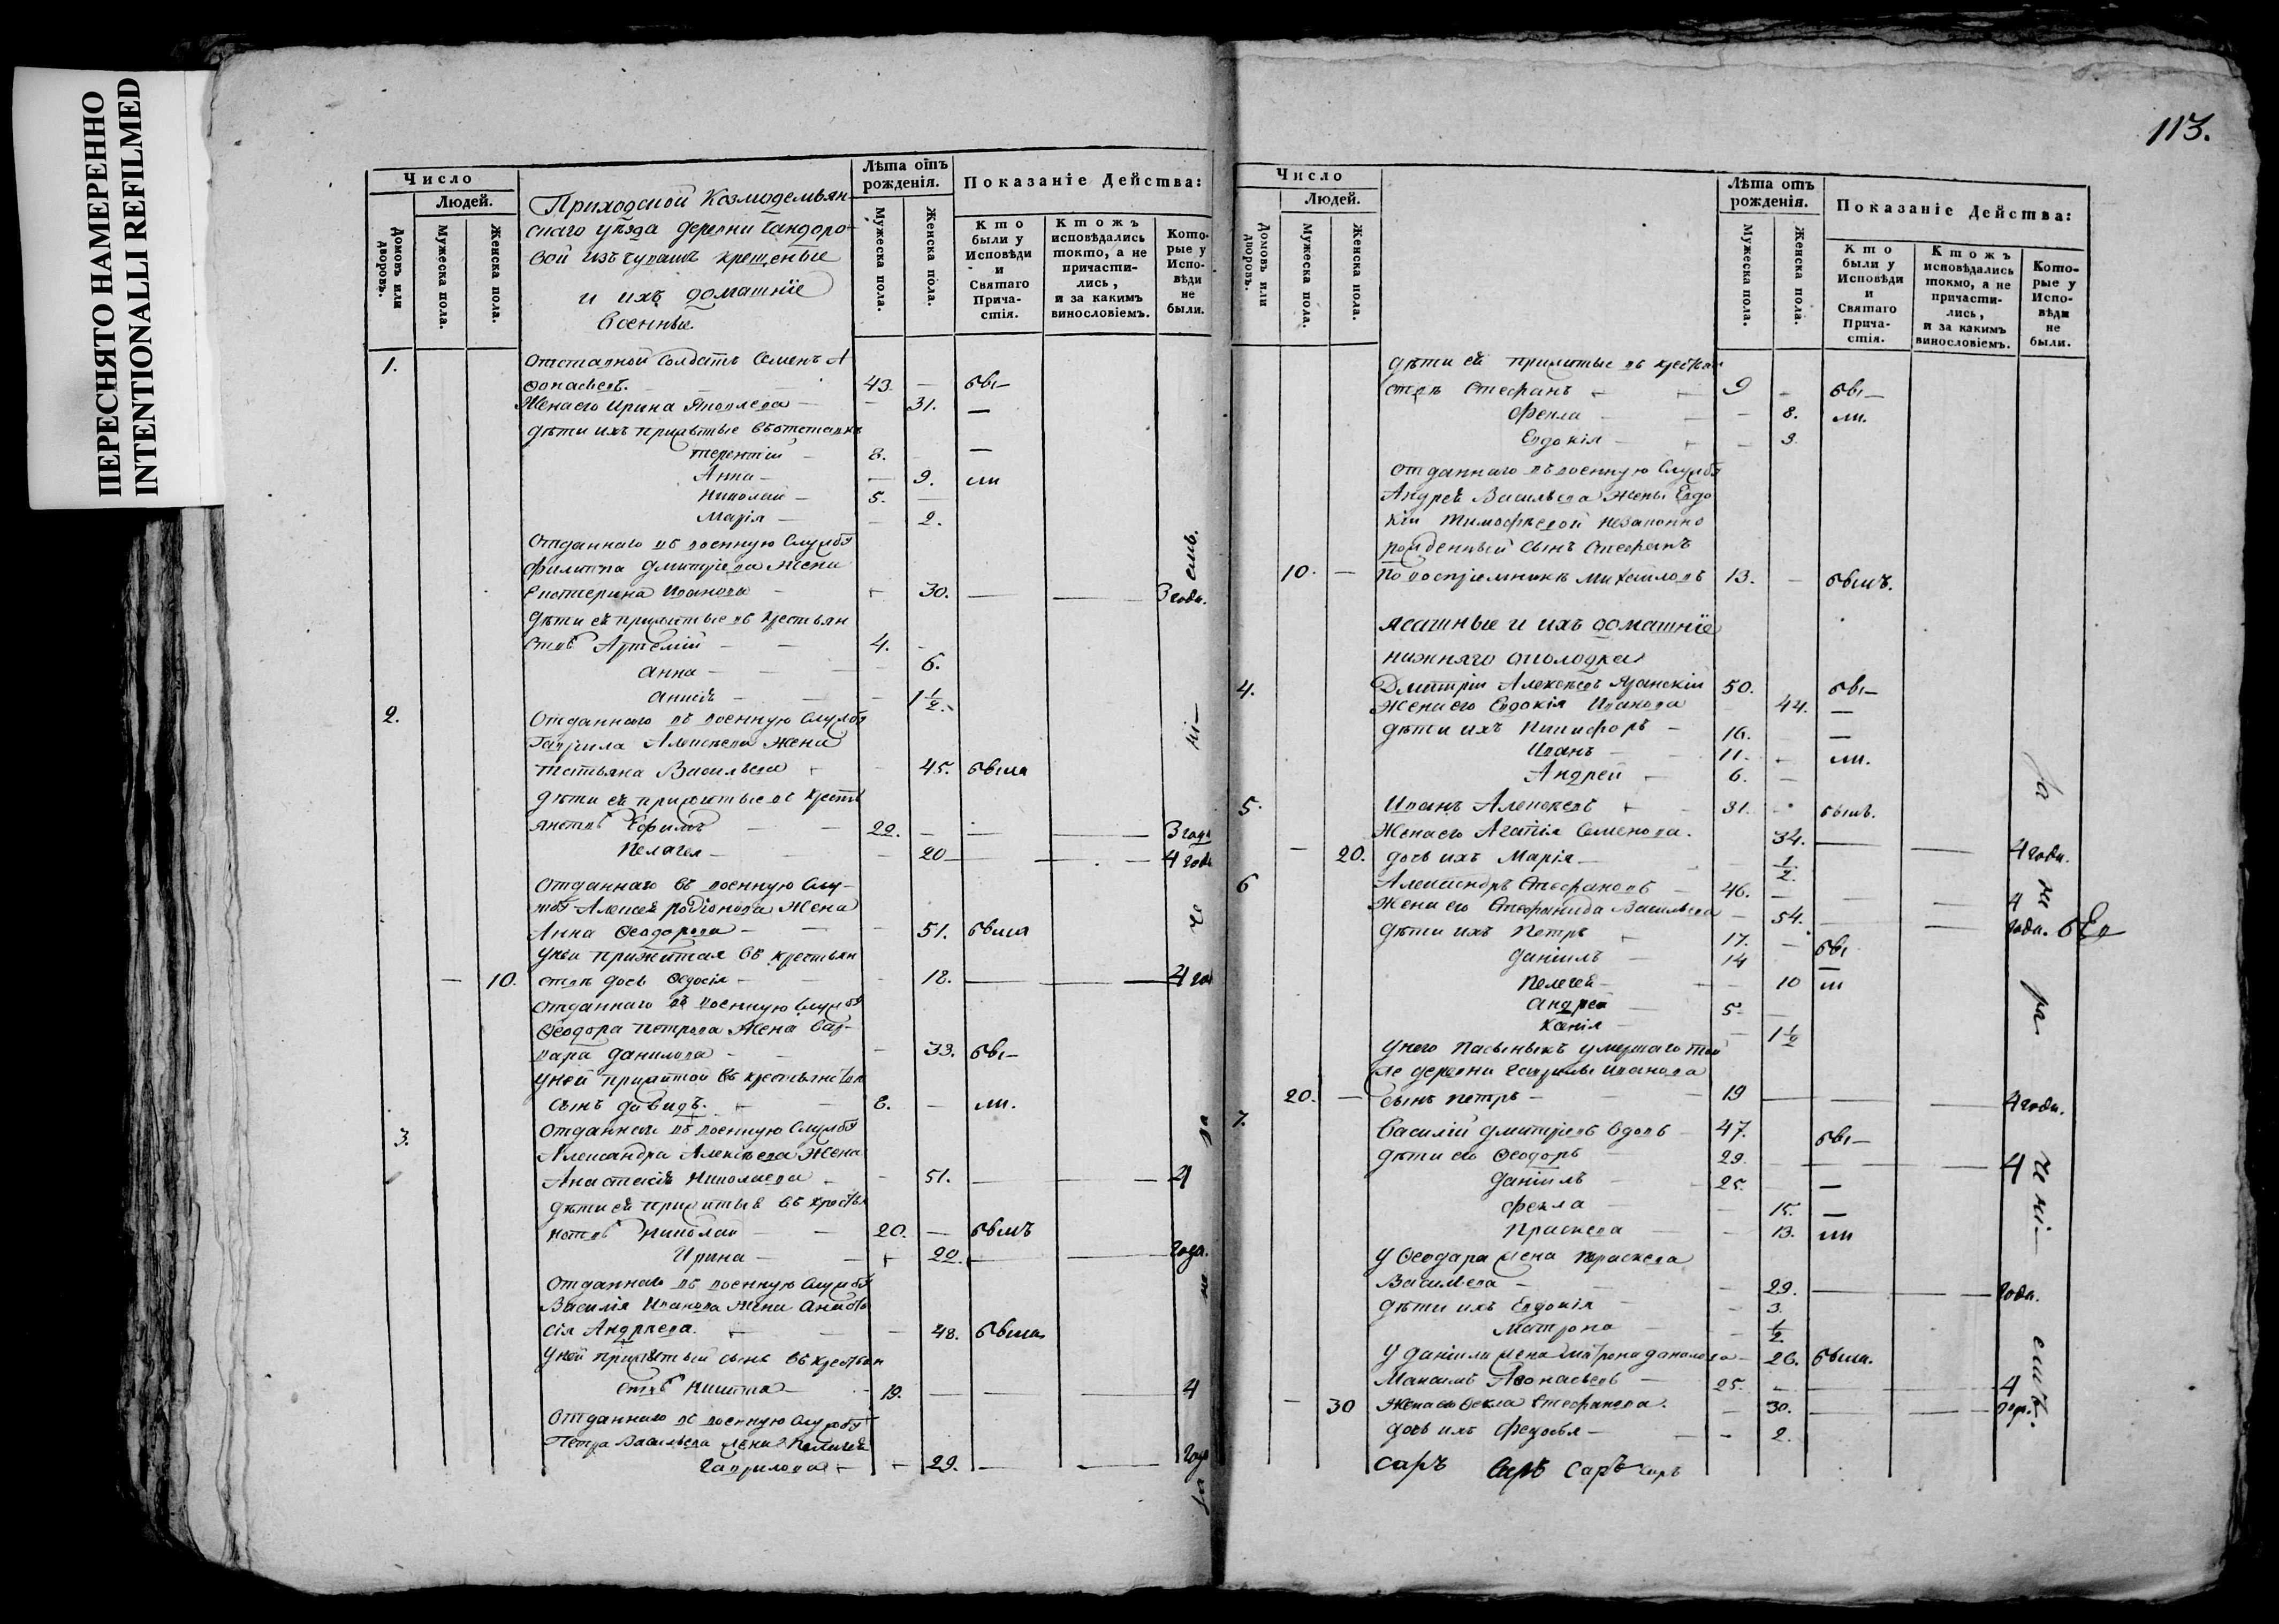 ПЕРЕСНЯТО НАМЕРЕННО
INTENTIONALLI REFILMED
113.
Число
Людей.
Домовъ или дворовъ.
Мужеска пола.
Женска пола.
Приходской Козмодемьян-
скаго уѣзда деревни
крещеные
и ихъ домашніе
Военные.
Лѣта отъ рожденія.
Мужеска пола.
Женска пола.
Показаніе Действа:
Кто были у Исповѣди и Святаго Причастія.
Ктожъ исповѣдались токто, а не причастились, и за какимъ винословіемъ.
Которые у Исповѣди не были.
1. Отставной Солдатъ Семенъ А
фонасьевъ. 43. — бы—
Жена его Ирина Яковлева — 31. —
дѣти ихъ прижитые въ отставкѣ
Терентій 8. —
Анна — 9. ли
Николай — 5. —
Марія — 2.
Отданнаго въ военную Службу
Филиппа Дмитріева Жена
Екатерина Иванова 30. — 3 года.
дѣти ей прижитые въ крестьян
ствѣ Артемій 4.
Анна — 6.
Анисія 1 1/2.
2. Отданнаго въ военную Службу
Гаврила Алексѣева Жена
Татьяна Васильева 45. была
дѣти ей прижитые въ крестья
нствѣ Ефимъ 22. — 3 года
Пелагея — 20 — 4 года
Отданнаго въ военную Слу-
жбу Алексея Родіонова Жена
Анна Ѳеодорова — 51. была
у ней прижитая въ крестьян
— 10. ствѣ дочь Ѳедосія 18. — 4 го
Отданнаго въ военную Службу
Ѳеодора Петрова Жена Вар-
вара Данилова — 33. бы—
у ней прижитой въ крестьянствѣ
сынъ Давидъ. 8. — ли.
3. Отданнаго въ военную Службу
Александра Алексѣева Жена
Анастасія Николаева 51. — 4
дѣти ей прижитые въ крестья
нствѣ Николай 20. — былъ
Ирина — 20. — года.
Отданнаго въ военную Службу
Василія Иванова Жена Анаста
сія Андреева. 48. была
у ней прижитый сынъ въ крестьян
ствѣ Никита — 19. — 4
Отданнаго въ военную Службу
Петра Васильева жена Пелагея
Гаврилова 29. — года
Число
Людей.
Домовъ или дворовъ.
Мужеска пола.
Женска пола.
Лѣта отъ рожденія.
Мужеска пола.
Женска пола.
Показаніе Действа:
Кто были у Исповѣди и Святаго Причастія.
Ктожъ исповѣдались токмо, а не причастились, и за какимъ винословіемъ.
Которые у Исповѣди не были.
дѣти ей прижитые въ крестьян
ствѣ Стефанъ 9 — бы—
Фекла — 8. ли.
Евдокія — 3.
Отданнаго въ военную Службу
Андрея Васильева Жены Евдо
кіи Тимофѣевой незаконно
рожденный сынъ Стефанъ
10. — по воспріемникѣ Михайловъ 13. — былъ.
Ясашные и ихъ домашніе
нижняго околодка
4. Дмитрій Алексѣевъ 50. бы—
Жена его Евдокія Иванова 44. —
дѣти ихъ Никифоръ — 16. —
Иванъ 11. ли.
Андрей 6. —
5. Иванъ Алексѣевъ 31. былъ.
Жена его Агафія Семенова. 34. — 4 года.
— 20. дочь ихъ Марія — 1/2.
6 Александръ Стефановъ — 46. — 4
Жена его Стефанида Васильева 54. — года.
дѣти ихъ Петръ 17. — бы
Даніилъ 14 —
Пелагея — 10 ли
Андрей 5. —
Ксенія 1 1/2
у него пасынокъ умершаго той
же деревни Гаврилы Иванова
20. — сынъ Петръ — 19 — 4 года.
7. Василій Дмитріевъ вдовъ 47. бы—
дѣти его Ѳеодоръ 29. — 4
Даніилъ 25. —
Фекла 15. —
Праскева 13. ли
у Ѳеодора жена Праскева
Васильева — 29. — года.
дѣти ихъ Евдокія 3.
Матрона 1/2
у Даніила жена Матрона Данилова — 26. была.
Максимъ Афонасьевъ 25. — 4
— 30 Жена его Ѳекла Стефанова. 30. — года.
дочь ихъ Федосья — 2.
Саръ Саръ Саръ Саръ